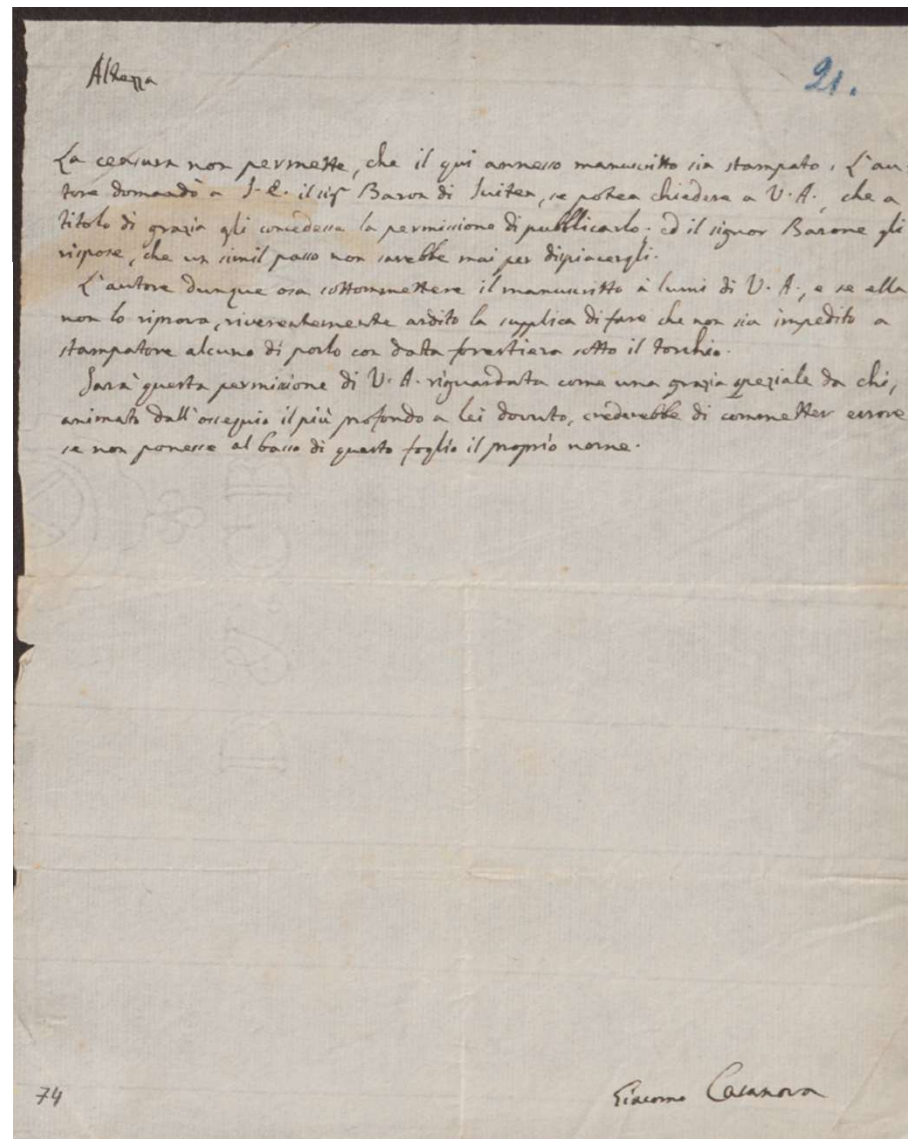 Altezza
21.
La censura non permette, che il qui annesso manuscritto sia stampato. L'au-
tore domandò a S. E. il sig.r Baron di Suiten, se potea chiedere a V. A., che a
titolo di grazia gli concedesse la permissione di pubblicarlo. ed il signor Barone gli
rispose, che un simil passo non sarebbe mai per dispiacergli.
L'autore dunque osa sottommettere il manuscritto à lumi di V. A., e se ella
non lo riprova, riverentemente ardito la supplica di fare che non sia impedito a
stampatore alcuno di porlo con data forestiera sotto il torchio.
Sarà questa permissione di V. A. riguardata come una grazia speziale da chi,
animato dall'ossequio il più profondo a lei dovuto, crederebbe di commetter errore
se non ponesse al basso di questo foglio il proprio nome.
74
Giacomo Casanova